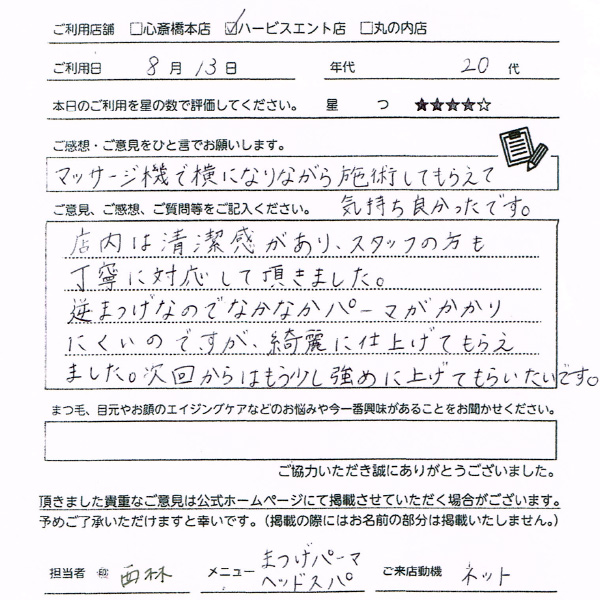 ご利用店舗 □心斎橋本店 ☑ハービスエント店 □丸の内店
ご利用日 8月13日 年代 20代
本日のご利用を星の数で評価してください。 星 つ ★★★★☆
ご感想・ご意見をひと言でお願いします。
マッサージ機で横になりながら施術してもらえて
気持ち良かったです。
ご意見、ご感想、ご質問等をご記入ください。
店内は清潔感があり、スタッフの方も
丁寧に対応して頂きました。
逆まつげなのでなかなかパーマがかかり
にくいのですが、綺麗に仕上げてもらえ
ました。次回からはもう少し強めに上げてもらいたいです。
まつ毛、目元やお顔のエイジングケアなどのお悩みや今一番興味があることをお聞かせください。
ご協力いただき誠にありがとうございました。
頂きました貴重なご意見は公式ホームページにて掲載させていただく場合がございます。
予めご了承いただけますと幸いです。（掲載の際にはお名前の部分は掲載いたしません。）
担当者 ㊞ 西林 メニュー まつげパーマ ヘッドスパ ご来店動機 ネット